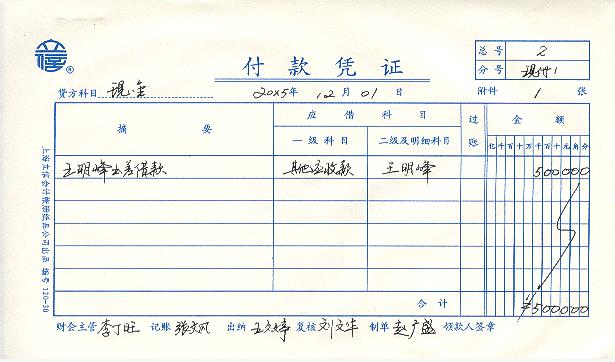 总号 2
付款凭证
分号 现付1
贷方科目 现金 20X5年12月01日 附件 1 张
摘要 应借科目 过账 金额
一级科目 二级及明细科目 亿千百十万千百十元角分
王明峰出差借款 其他应收款 王明峰 500000
合计 ¥500000
财会主管 李丁旺 记账 张文凤 出纳 王文婷 复核 刘文华 制单 赵广盛 领款人签章
上海立信会计账册纸品公司出品 编号 120-30